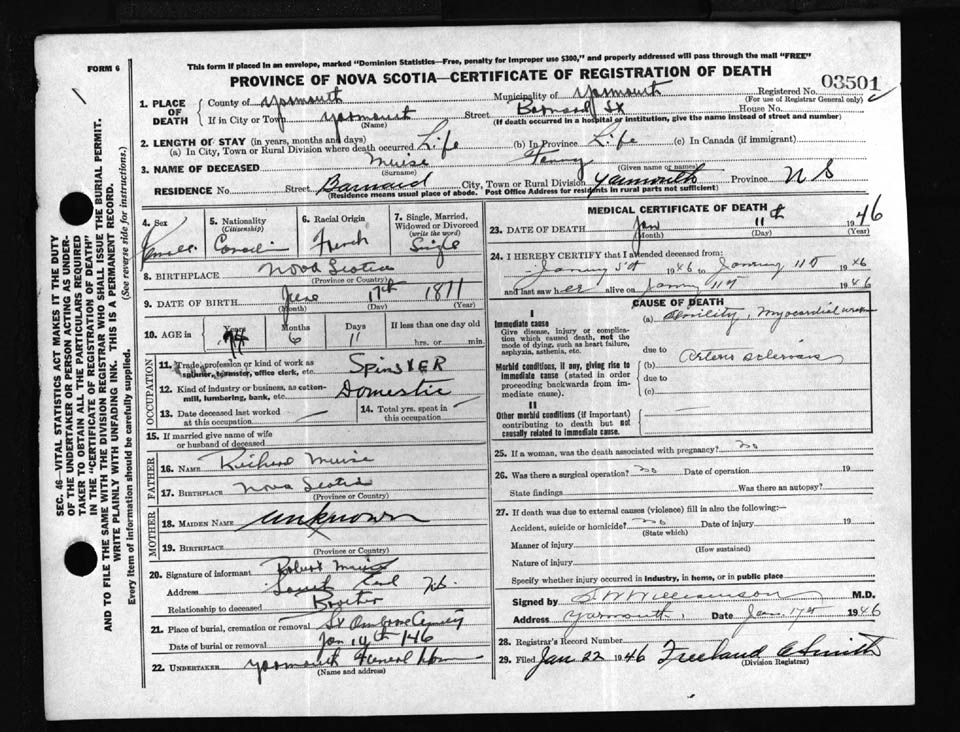 FORM 6
This form if placed in an envelope, marked "Dominion Statistics—Free, penalty for improper use $300," and properly addressed will pass through the mail "FREE"
PROVINCE OF NOVA SCOTIA—CERTIFICATE OF REGISTRATION OF DEATH
03501
Registered No.
(For use of Registrar General only)
1. PLACE OF DEATH
County of Yarmouth Municipality of Yarmouth
If in City or Town Yarmouth Street House No.
(Name) (If death occurred in a hospital or institution, give the name instead of street and number)
2. LENGTH OF STAY (in years, months and days)
(a) In City, Town or Rural Division where death occurred Life (b) In Province Life (c) In Canada (if immigrant)
3. NAME OF DECEASED Muise Fanny
(Surname) (Given name or name)
RESIDENCE No. Street Barnard City, Town or Rural Division Yarmouth Province N S
(Residence means usual place of abode. Post Office Address for residents in rural parts not sufficient)
4. Sex 5. Nationality (Citizenship) 6. Racial Origin 7. Single, Married, Widowed or Divorced (write the word)
Female French Single
8. BIRTHPLACE Nova Scotia
(Province or Country)
9. DATE OF BIRTH 11th 1871
(Month) (Day) (Year)
10. AGE in Years Months Days If less than one day old
6 11 hrs. or min.
OCCUPATION
11. Trade, profession or kind of work as spinner, teamster, office clerk, etc. SPINSTER
12. Kind of industry or business, as cotton-mill, lumbering, bank, etc. Domestic
13. Date deceased last worked at this occupation
14. Total yrs. spent in this occupation
15. If married give name of wife or husband of deceased
FATHER
16. NAME Muise
17. BIRTHPLACE Nova Scotia
(Province or Country)
MOTHER
18. MAIDEN NAME Unknown
19. BIRTHPLACE
(Province or Country)
20. Signature of informant Robert Muise
Address
Relationship to deceased Brother
21. Place of burial, cremation or removal
Date of burial or removal Jan 14th /46
22. UNDERTAKER Yarmouth Funeral Home
(Name and address)
MEDICAL CERTIFICATE OF DEATH
23. DATE OF DEATH Jan 11th 1946
(Month) (Day) (Year)
24. I HEREBY CERTIFY that I attended deceased from:
January 5th 1946 to January 11th 1946
and last saw her alive on January 11th 1946
CAUSE OF DEATH
I
Immediate cause
Give disease, injury or complication which caused death, not the mode of dying, such as heart failure, asphyxia, asthenia, etc.
(a) Senility, Myocardial
due to Arterio sclerosis
Morbid conditions, if any, giving rise to immediate cause (stated in order proceeding backwards from immediate cause).
(b)
due to
(c)
II
Other morbid conditions (if important) contributing to death but not causally related to immediate cause.
25. If a woman, was the death associated with pregnancy? No
26. Was there a surgical operation? No Date of operation 19
State findings Was there an autopsy?
27. If death was due to external causes (violence) fill in also the following:—
Accident, suicide or homicide? No Date of injury 19
(State which)
Manner of injury
(How sustained)
Nature of injury
Specify whether injury occurred in industry, in home, or in public place
Signed by Williamson M.D.
Address Yarmouth. Date Jan. 17th 1946
28. Registrar's Record Number
29. Filed Jan 22 1946 Freeland Smith
(Division Registrar)
SEC. 46—VITAL STATISTICS ACT MAKES IT THE DUTY
OF THE UNDERTAKER OR PERSON ACTING AS UNDER-
TAKER TO OBTAIN ALL THE PARTICULARS REQUIRED
IN THE "CERTIFICATE OF REGISTRATION OF DEATH"
AND TO FILE THE SAME WITH THE DIVISION REGISTRAR WHO SHALL ISSUE THE BURIAL PERMIT.
WRITE PLAINLY WITH UNFADING INK. THIS IS A PERMANENT RECORD.
Every item of information should be carefully supplied. (See reverse side for instructions.)